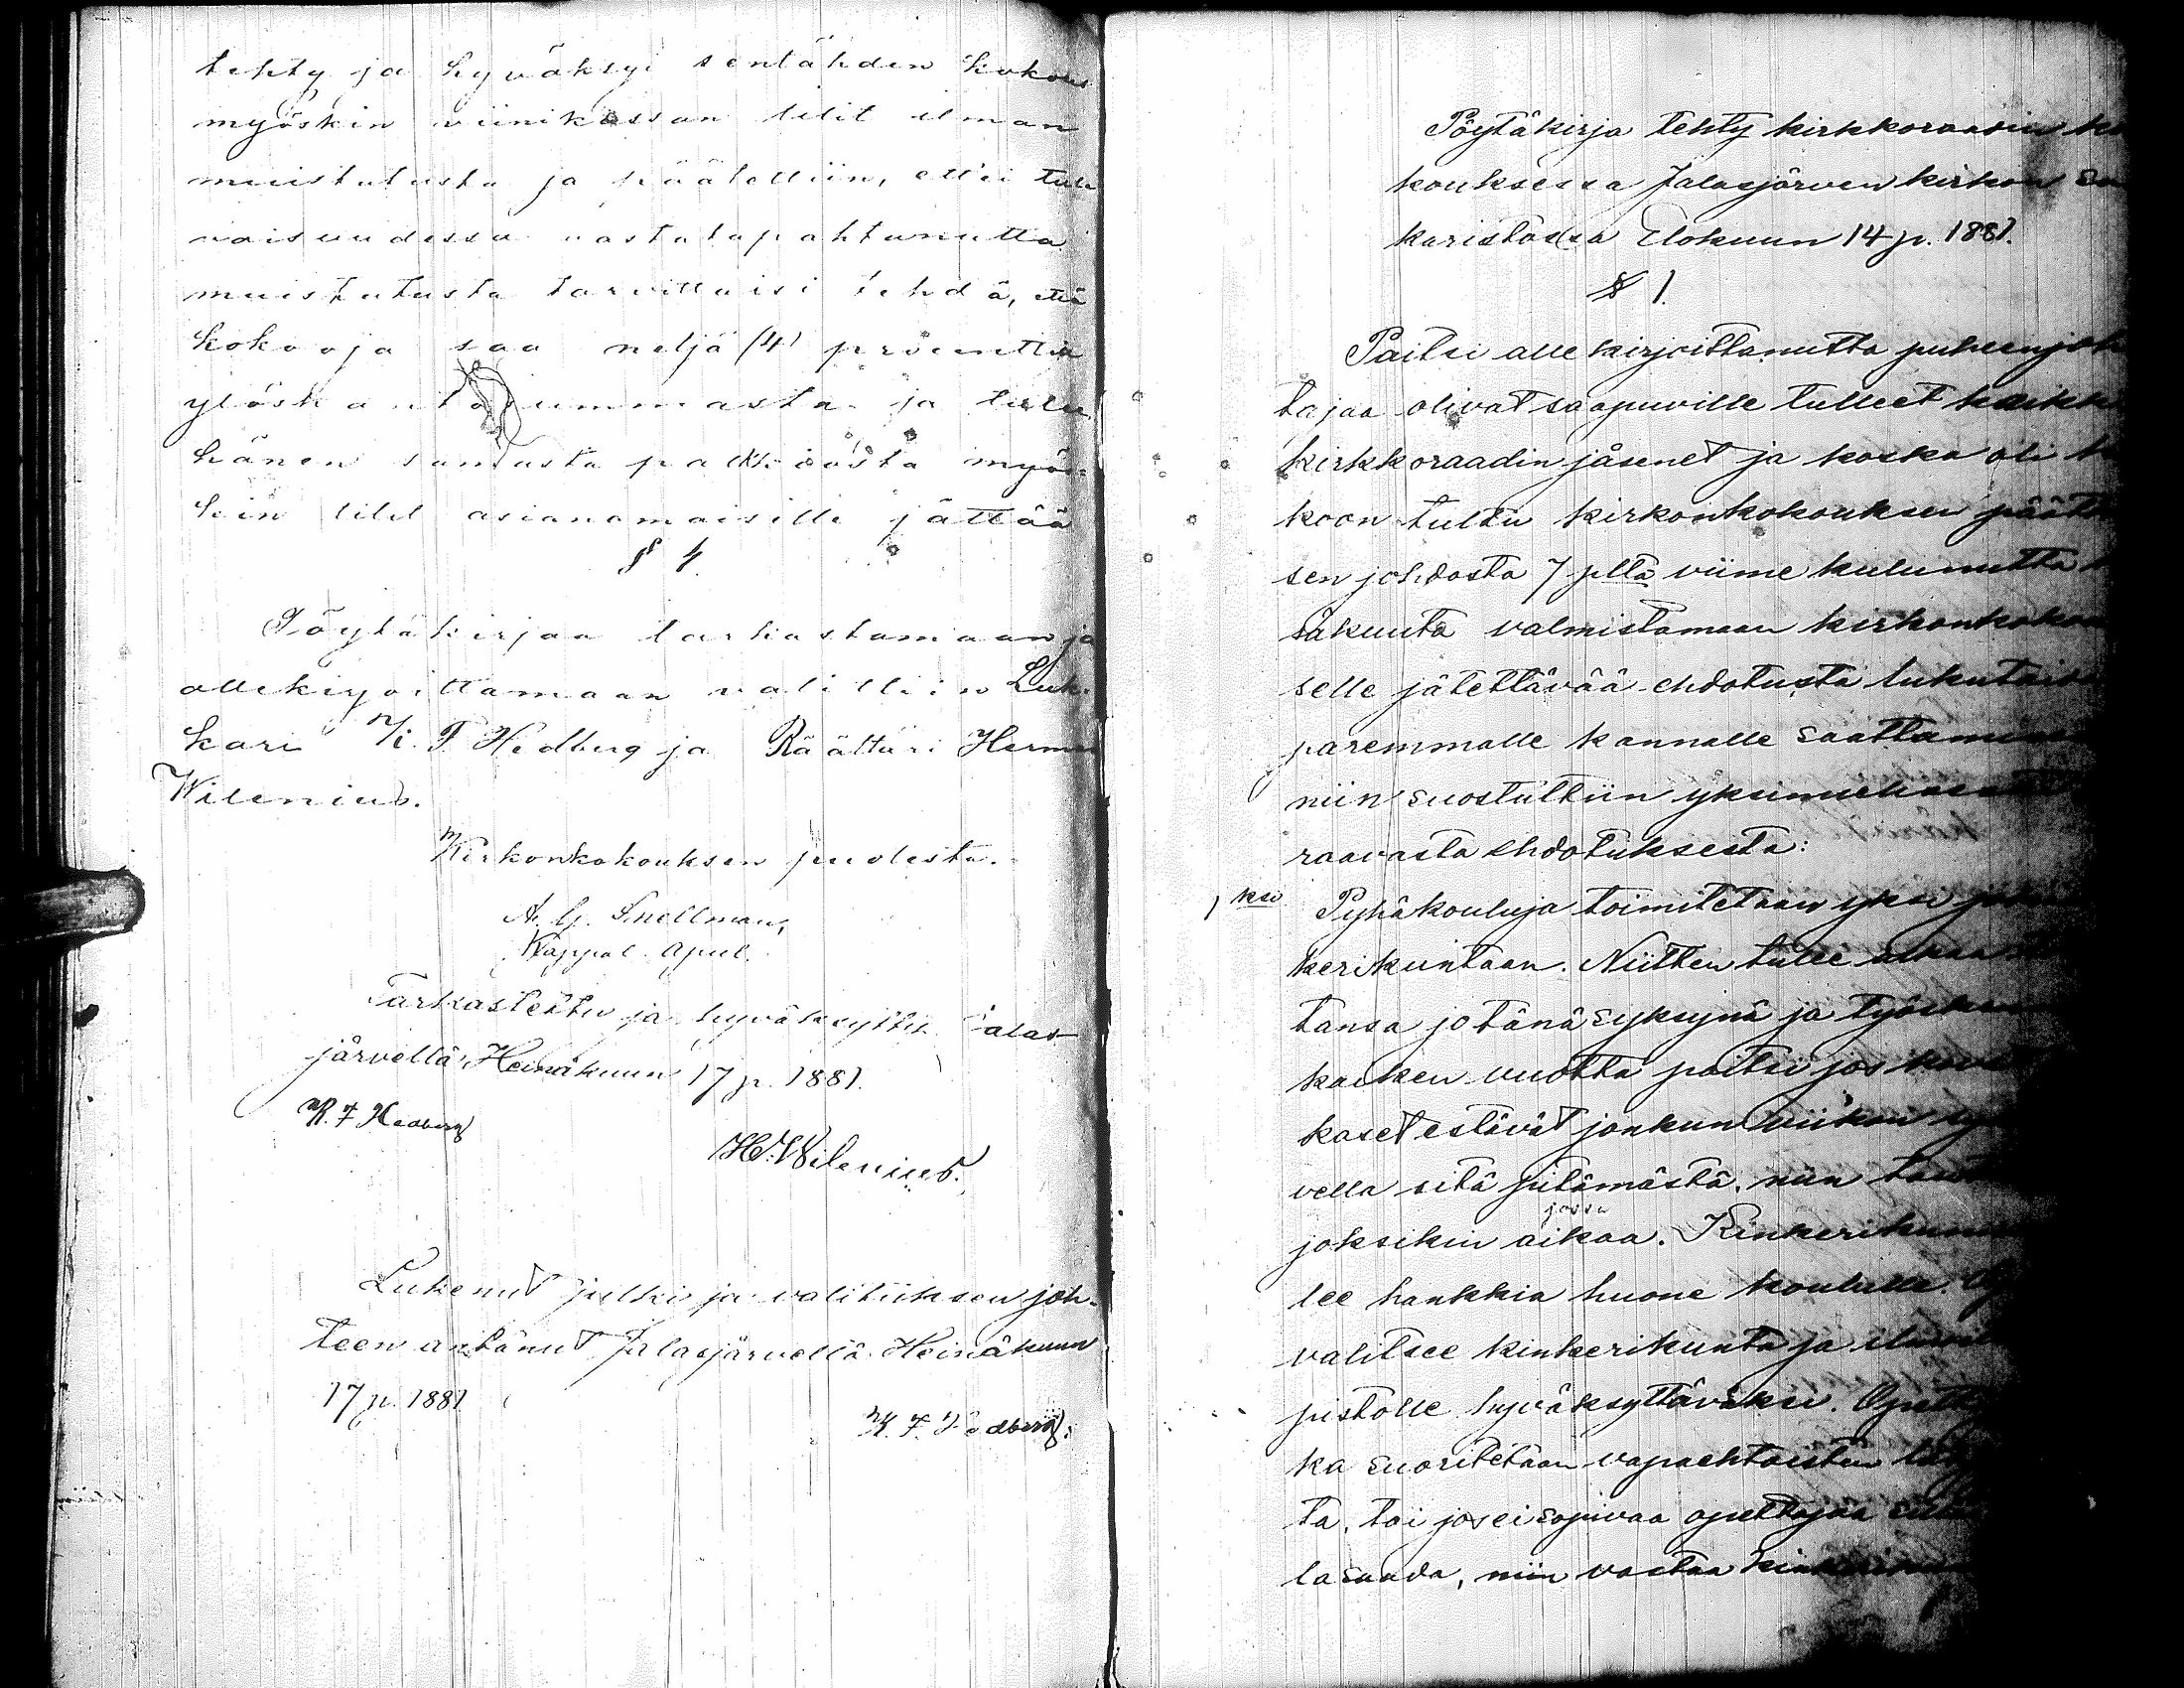 tehty ja hyväksyi sentähden kokous
myöskin viinikassan tilit ilman
muistutusta ja päätettiin, ett'ei tule
vaisuudessa vastatapahtunutta
muistutusta tarvittaisi tehdä, että
kokooja saa neljä (4) prosenttia
ylöskantosummasta ja tulee
hänen samasta palkkiosta myös-
kin tilit asianomaisille jättää
§ 4.
Pöytäkirjaa tarkastamaan ja
allekirjoittamaan valittiin Luk-
kari K. F. Hedberg ja Räättäri Herman
Wilenius.
Kirkonkokouksen puolesta.
A. G. Snellman,
Kappal. apul.
Tarkastettu ja hyväksytty Jalas-
järvellä Heinäkuun 17 p. 1881.
K. F. Hedberg
H. Wilenius.
Lukenut julki ja valituksen joh-
teen antanut Jalasjärvellä Heinäkuun
17 p. 1881
K. F. Hedberg.
Pöytäkirja tehty kirkkoraadin ko
kouksessa Jalasjärven kirkon sa
karistossa Elokuun 14 p. 1881.
§ 1.
Paitsi allekirjoittanutta puheenjoh
tajaa olivat saapuville tulleet kaikk
kirkkoraadin jäsenet ja koska oli ko
koon tultu kirkonkokouksen päätö
sen johdosta 7 p:ltä viime kulunutta
säkuuta valmistamaan kirkonkokou
selle jätettävää ehdotusta lukutaid
paremmalle kannalle saattamise
niin suostuttiin yksimielisesti
raavasta ehdotuksesta:
1 ksi Pyhäkouluja toimitetaan yksi jok
kerikuntaan. Niitten tulee alkaa
tansa jo tänä syksynä ja työsken
kaiken vuotta paitsi jos kova
kaset estävät jonkun viikon
vella sitä pitämästä, niin
jossa
joksikin aikaa. Kinkerikun
lee hankkia huone koululle.
valitsee kinkerikunta ja ilmoi
pistolle hyväksyttäväksi. Opetta
ka suoritetaan vapaehtoisten
ta, tai jos ei sopivaa opettajaa
la saada, niin vastaa kinkerikun